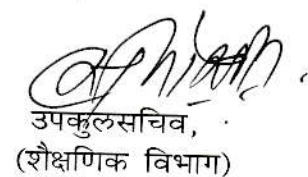 उपकुलसचिव,
(शैक्षणिक विभाग)